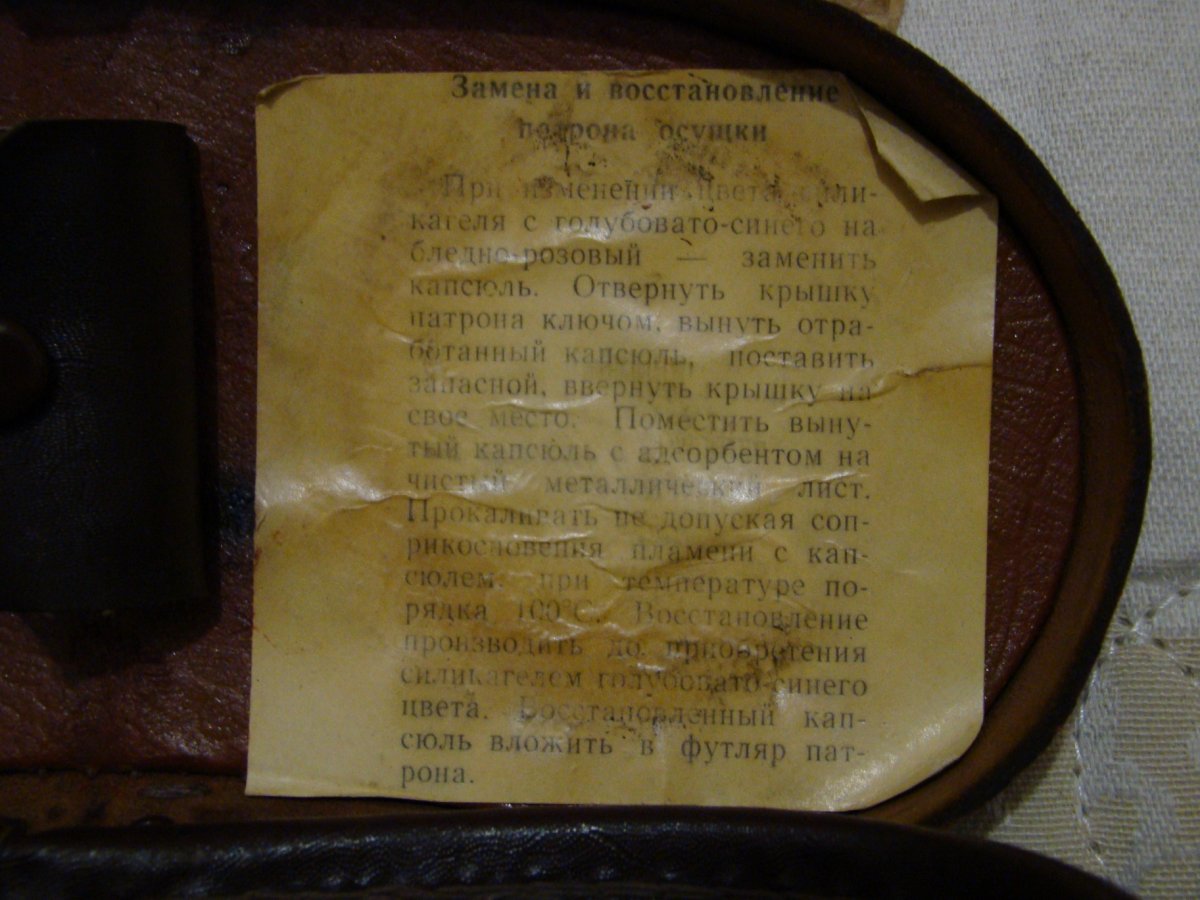 Замена и восстановление
патрона осушки
При изменении цвета сили-
кагеля с голубовато-синего на
бледно-розовый — заменить
капсюль. Отвернуть крышку
патрона ключом, вынуть отра-
ботанный капсюль, поставить
запасной, ввернуть крышку на
свое место. Поместить выну-
тый капсюль с адсорбентом на
чистый металлический лист.
Прокаливать не допуская соп-
рикосновения пламени с кап-
сюлем, при температуре по-
рядка 100°С. Восстановление
производить до приобретения
силикагелем голубовато-синего
цвета. Восстановленный кап-
сюль вложить в футляр пат-
рона.